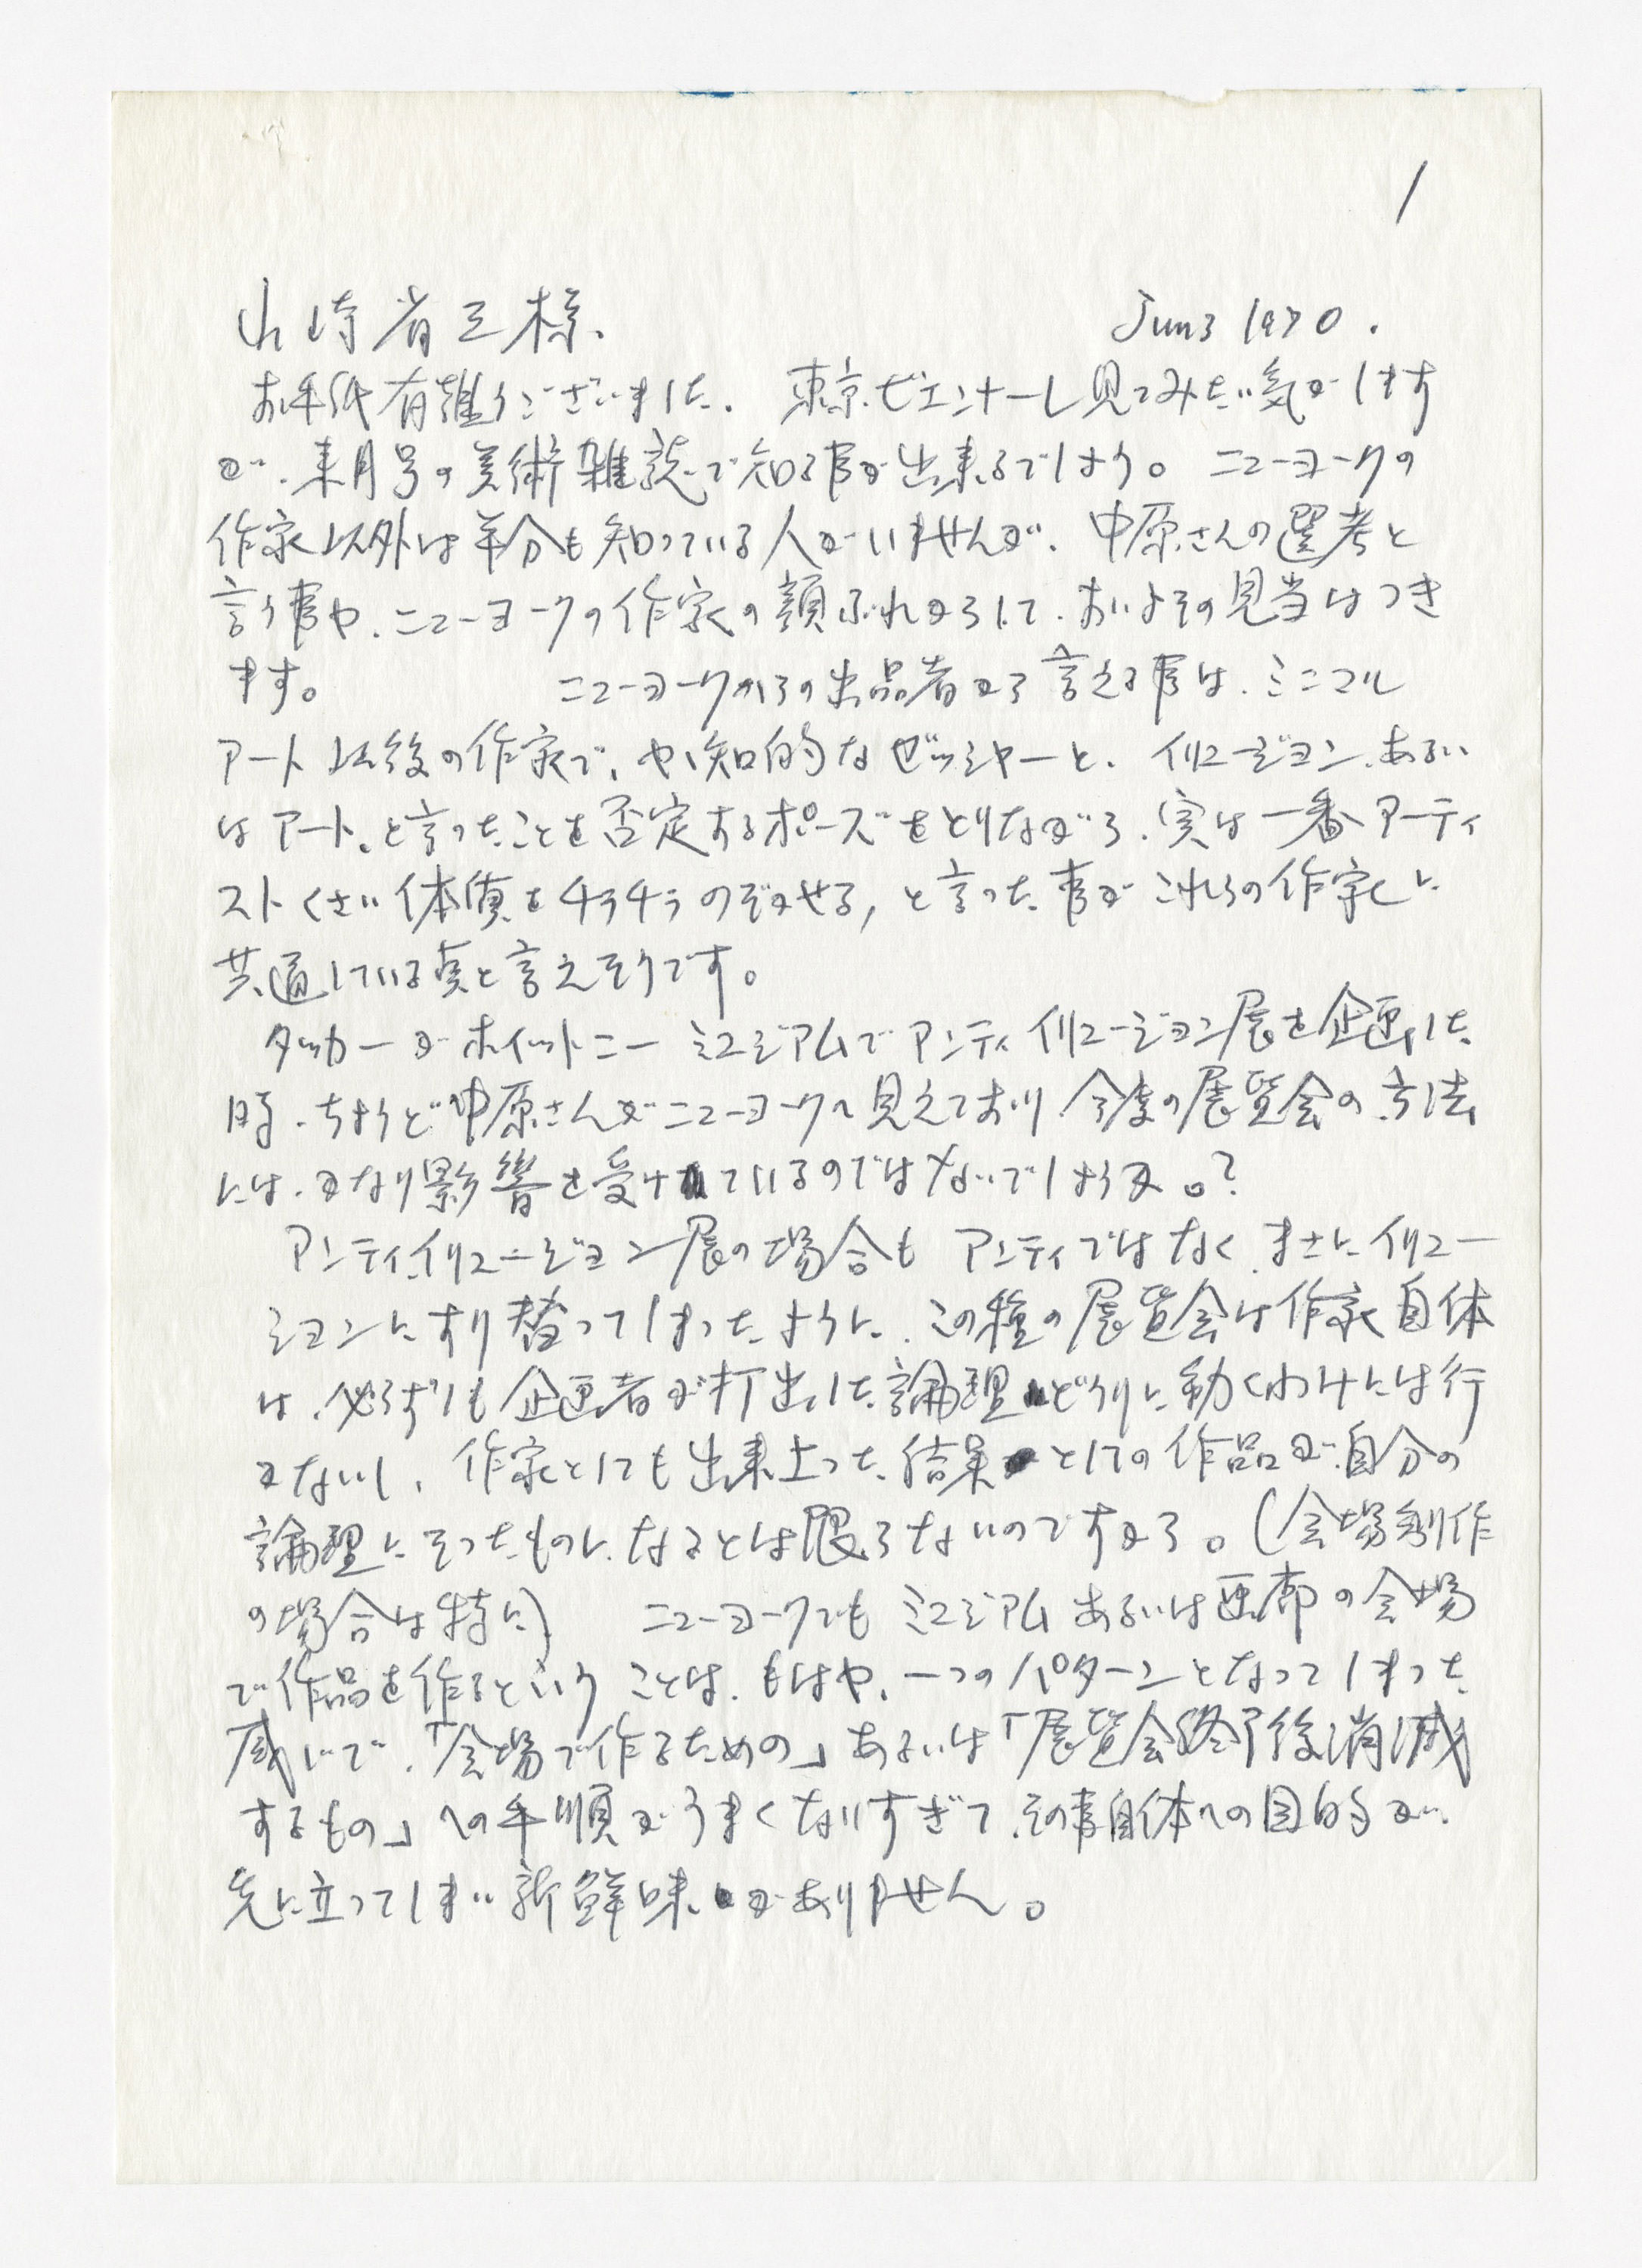 1
山崎省三様、 Jun 3 1970.
お手紙有難うございました。 東京ビエンナーレ見てみたい気がします
が、来月号の美術雑誌で知る事が出来るでしょう。 ニューヨークの
作家以外は半分も知っている人がいませんが、中原さんの選考と
言う事や、ニューヨークの作家の顔ぶれからして、おおよその見当はつき
ます。 ニューヨークからの出品者から言える事は、ミニマル
アート以後の作家で、やゝ知的なゼッシャーと、イリュージョン、あるい
はアート、と言ったことを否定するポーズをとりながら、実は一番アーティ
ストくさい体質をチラチラのぞかせる, と言った事がこれらの作家に
共通している点と言えそうです。
タッカーがホイットニーミュジアムでアンティイリュージョン展を企画した
時、ちょうど中原さんがニューヨークへ見えており今度の展覧会の方法
には、かなり影響を受けているのではないでしょうか。?
アンティイリュージョン展の場合もアンティではなく、まさにイリュー
ションにすり替ってしまったように、この種の展覧会は作家自体
は、必らずしも企画者が打出した論理どうりに動くわけには行
かないし、作家としても出来上った結果としての作品が自分の
論理にそったものになるとは限らないのですから。(会場制作
の場合は特に) ニューヨークでもミュジアムあるいは画廊の会場
で作品を作るということは、もはや、一つのパターンとなってしまった
感じで、「会場で作るための」あるいは「展覧会終了後消滅
するもの」への手順がうまくなりすぎて、その事自体への目的が、
先に立ってしまい新鮮味がありません。